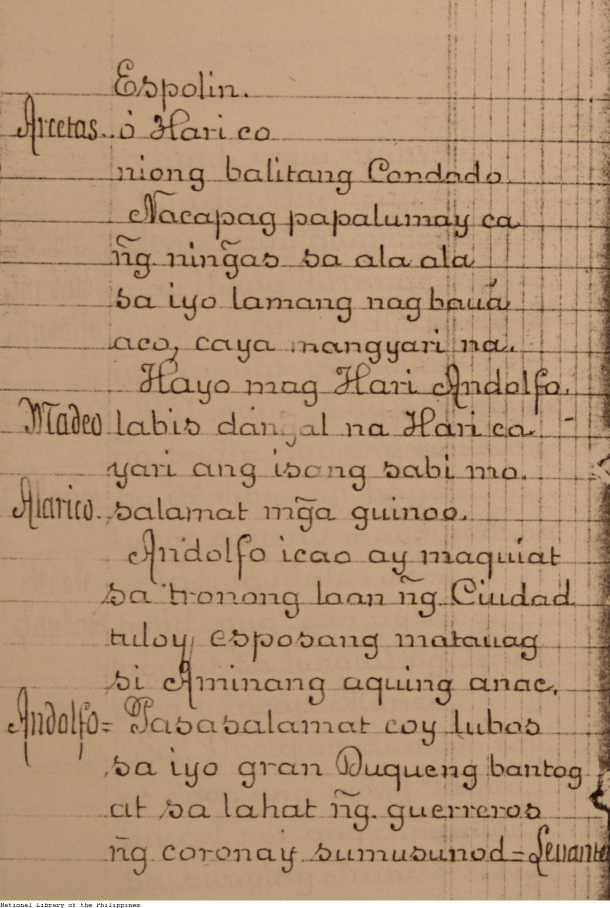 Espolin.
Arcetas. ó Hari co
niong balitang Condado.
Nacapag papalumay ca
ñg. ning̃as sa ala ala
sa iyo lamang nag bauá
aco, caya mangyari na.
Hayo mag Hari Andolfo.
Madeo labis dáng̃al na Hari ca
yari ang isang sabi mo.
Alarico. salamat mg̃a guinoo.
Andolfo icao ay maquiat
sa tronong laan ñg. Ciudad
tuloy esposang matauag
si Aminang aquing anac.
Andolfo = Pasasalamat coy lubos
sa iyo gran Duqueng bantog
at sa lahat ñg. guerreros
ñg. coronay sumusunod = Levante
National Library of the Philippines